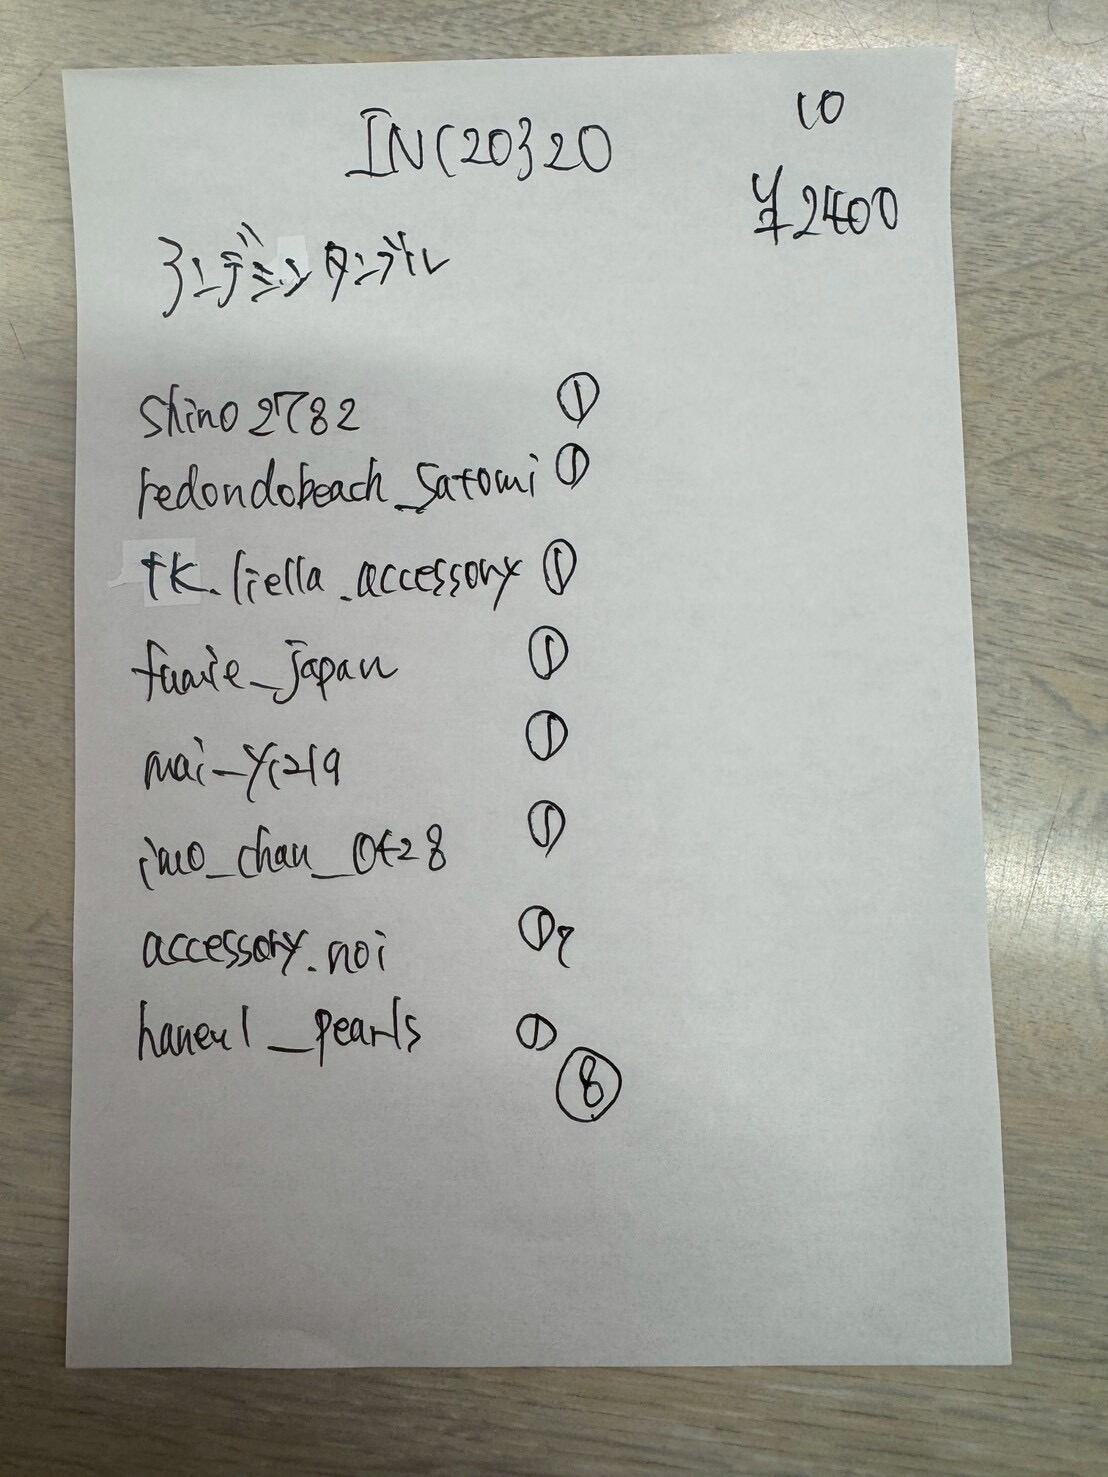 IN(20}20
10
¥2400
アンデシンタンブル
shino2782 ①
redondobeach_satomi ①
tk.liella_accessory ①
①
mai-yi219 ①
imo_chan_0428 ①
accessory.noi ①?
haneul_pearls ①
⑧